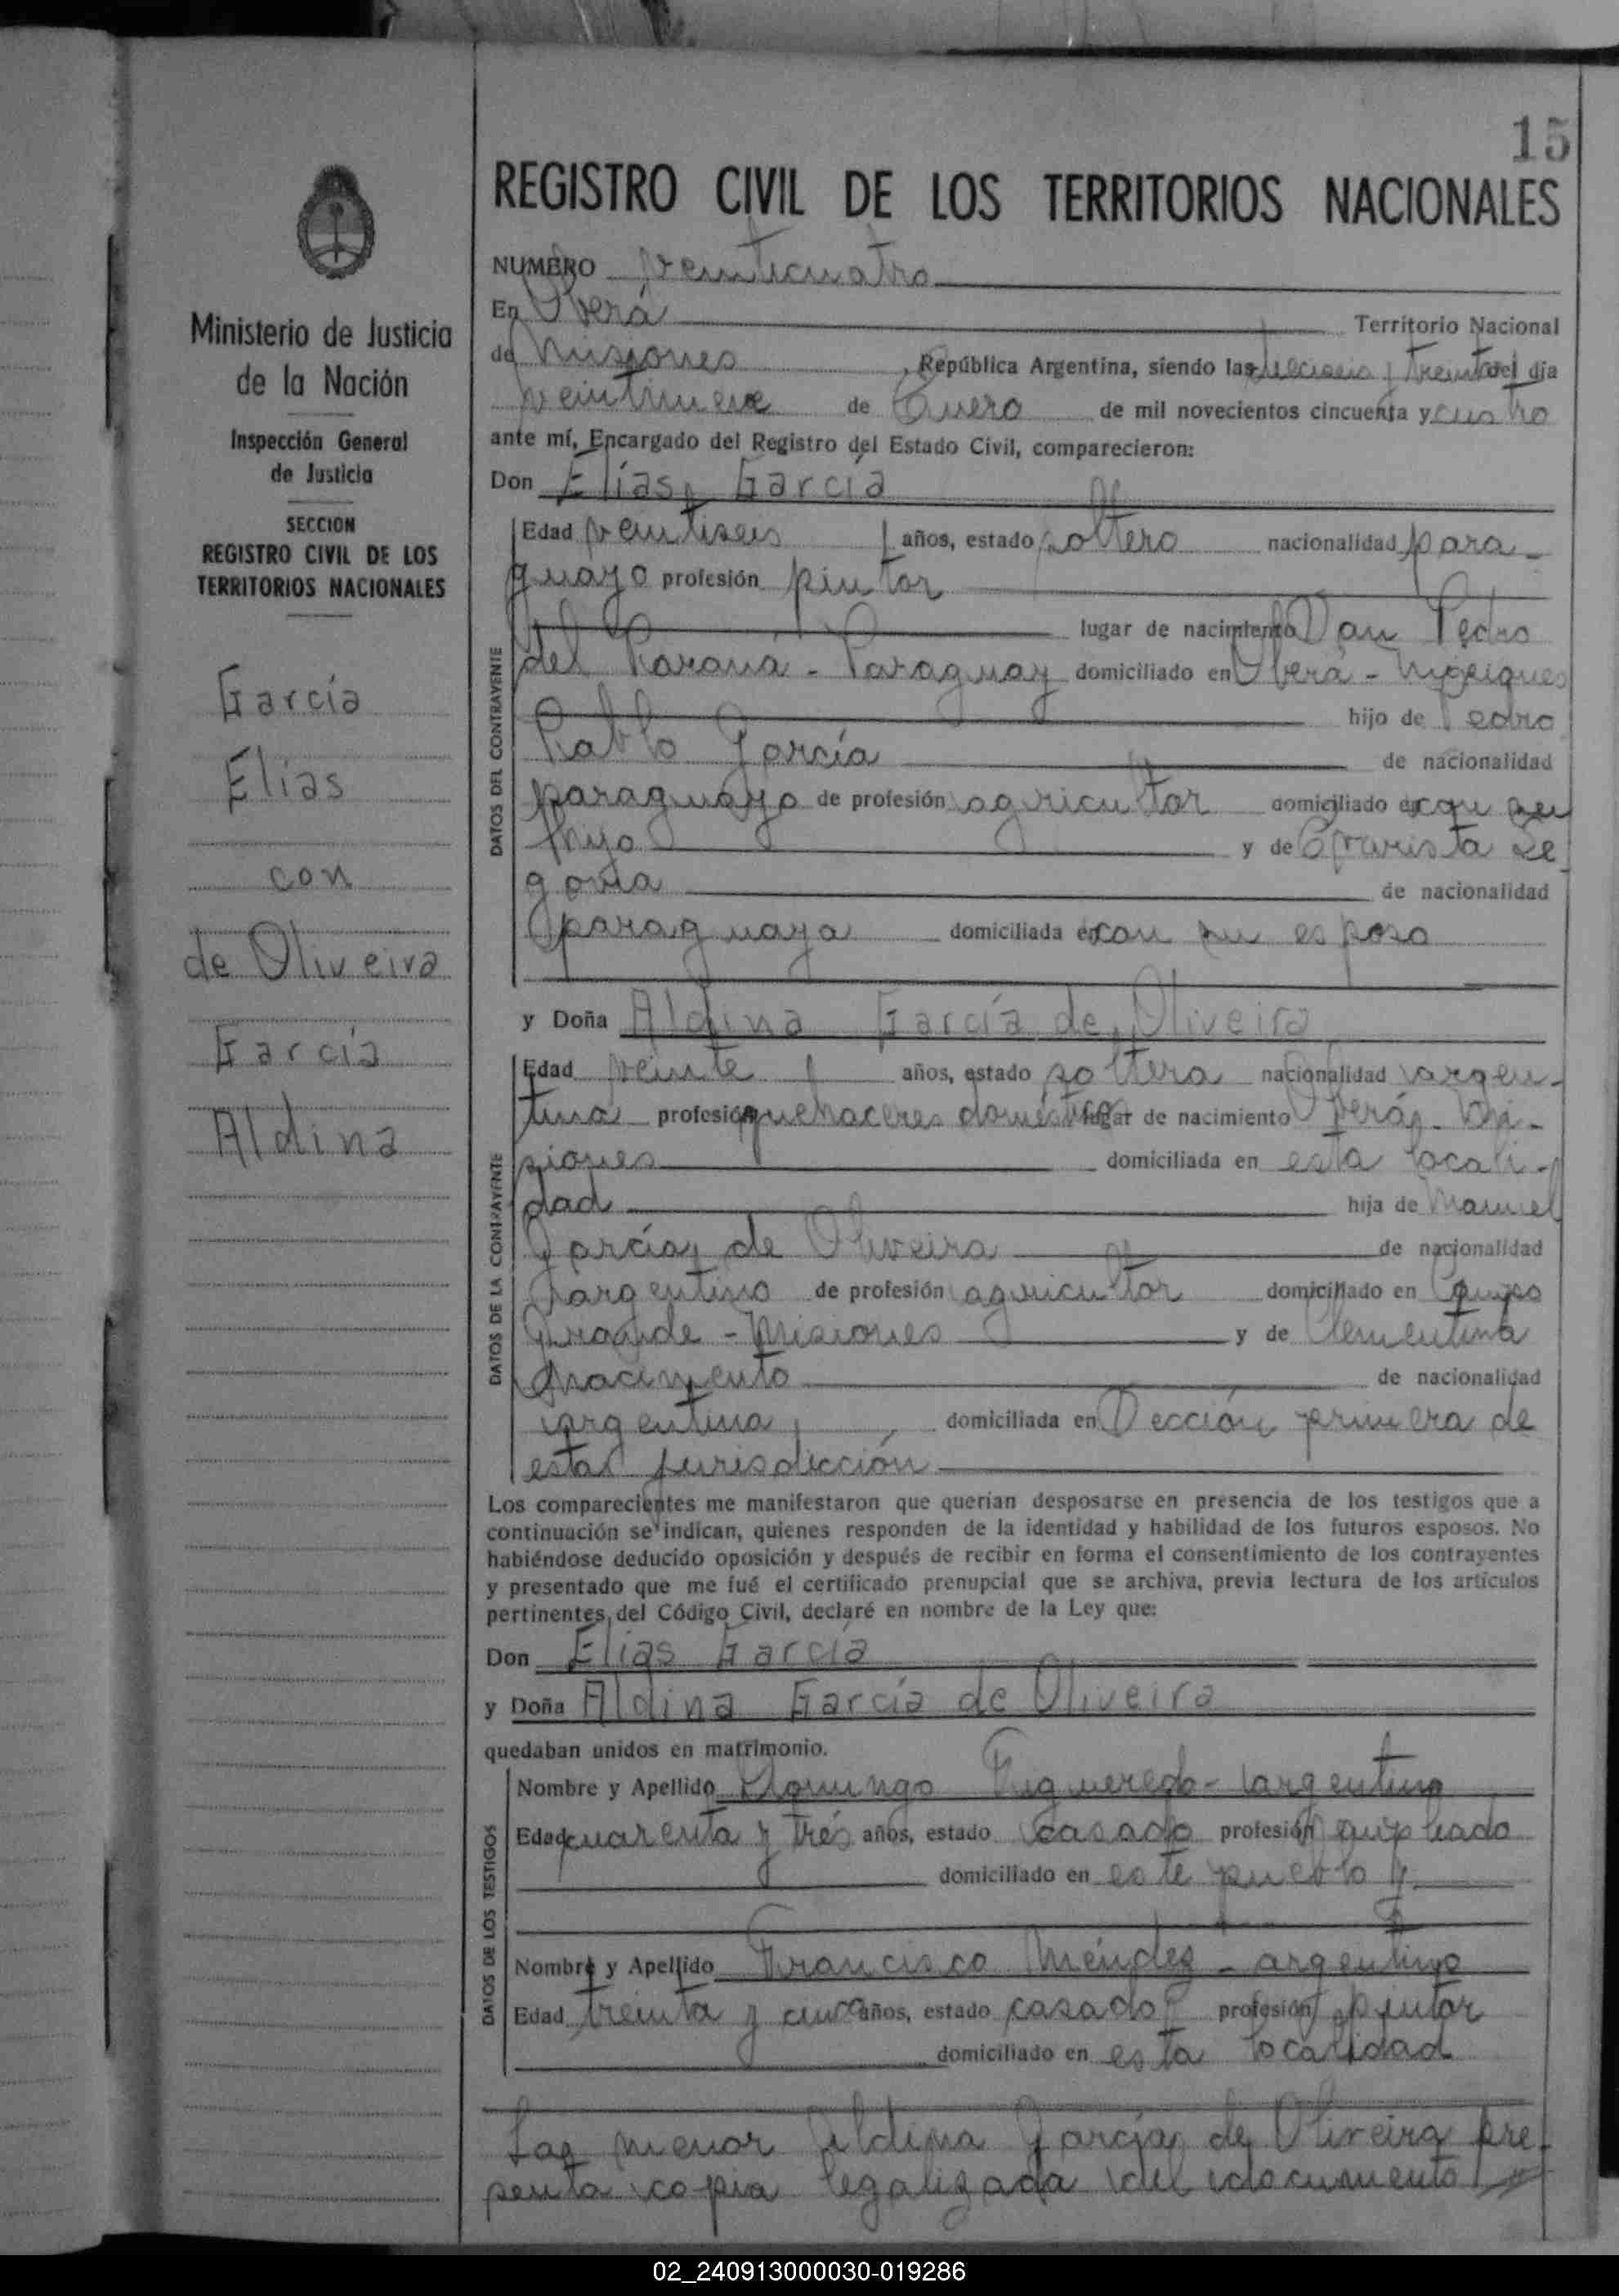 15
REGISTRO CIVIL DE LOS TERRITORIOS NACIONALES
Ministerio de Justicia
de la Nación
Inspección General
de Justicia
SECCION
REGISTRO CIVIL DE LOS
TERRITORIOS NACIONALES
García
Elías
con
de Oliveira
García
Aldina
NUMERO veinticuatro
En Oberá Territorio Nacional
de Misiones, República Argentina, siendo las dieciseis y treinta del día
veintinueve de Enero de mil novecientos cincuenta y cuatro
ante mí, Encargado del Registro del Estado Civil, comparecieron:
Don Elías García
DATOS DEL CONTRAYENTE
Edad veintiseis años, estado soltero nacionalidad para-
guayo profesión pintor
lugar de nacimiento San Pedro
del Paraná - Paraguay domiciliado en Oberá - Misiones
hijo de Pedro
Pablo García de nacionalidad
paraguayo de profesión agricultor domiciliado en con su
hijo y de Se-
govia de nacionalidad
paraguaya domiciliada en con su esposo
y Doña Aldina García de Oliveira
DATOS DE LA CONTRAYENTE
Edad veinte años, estado soltera nacionalidad argen-
tina profesión quehaceres domésticos lugar de nacimiento Oberá - Mi-
siones domiciliada en esta locali-
dad hija de Manuel
García de Oliveira de nacionalidad
argentino de profesión agricultor domiciliado en Campo
Grande - Misiones y de Clementina
Nacimento de nacionalidad
argentina, domiciliada en Sección primera de
esta jurisdicción
Los comparecientes me manifestaron que querían desposarse en presencia de los testigos que a
continuación se indican, quienes responden de la identidad y habilidad de los futuros esposos. No
habiéndose deducido oposición y después de recibir en forma el consentimiento de los contrayentes
y presentado que me fué el certificado prenupcial que se archiva, previa lectura de los artículos
pertinentes, del Código Civil, declaré en nombre de la Ley que:
Don Elías García
y Doña Aldina García de Oliveira
quedaban unidos en matrimonio.
DATOS DE LOS TESTIGOS
Nombre y Apellido Domingo Figueredo - argentino
Edad cuarenta y trés años, estado casado profesión empleado
domiciliado en este pueblo y
Nombre y Apellido Francisco Méndez - argentino
Edad treinta y cinco años, estado casado profesión pintor
domiciliado en esta localidad
La menor Aldina García de Oliveira pre-
senta copia legalizada del documento
02_240913000030-019286